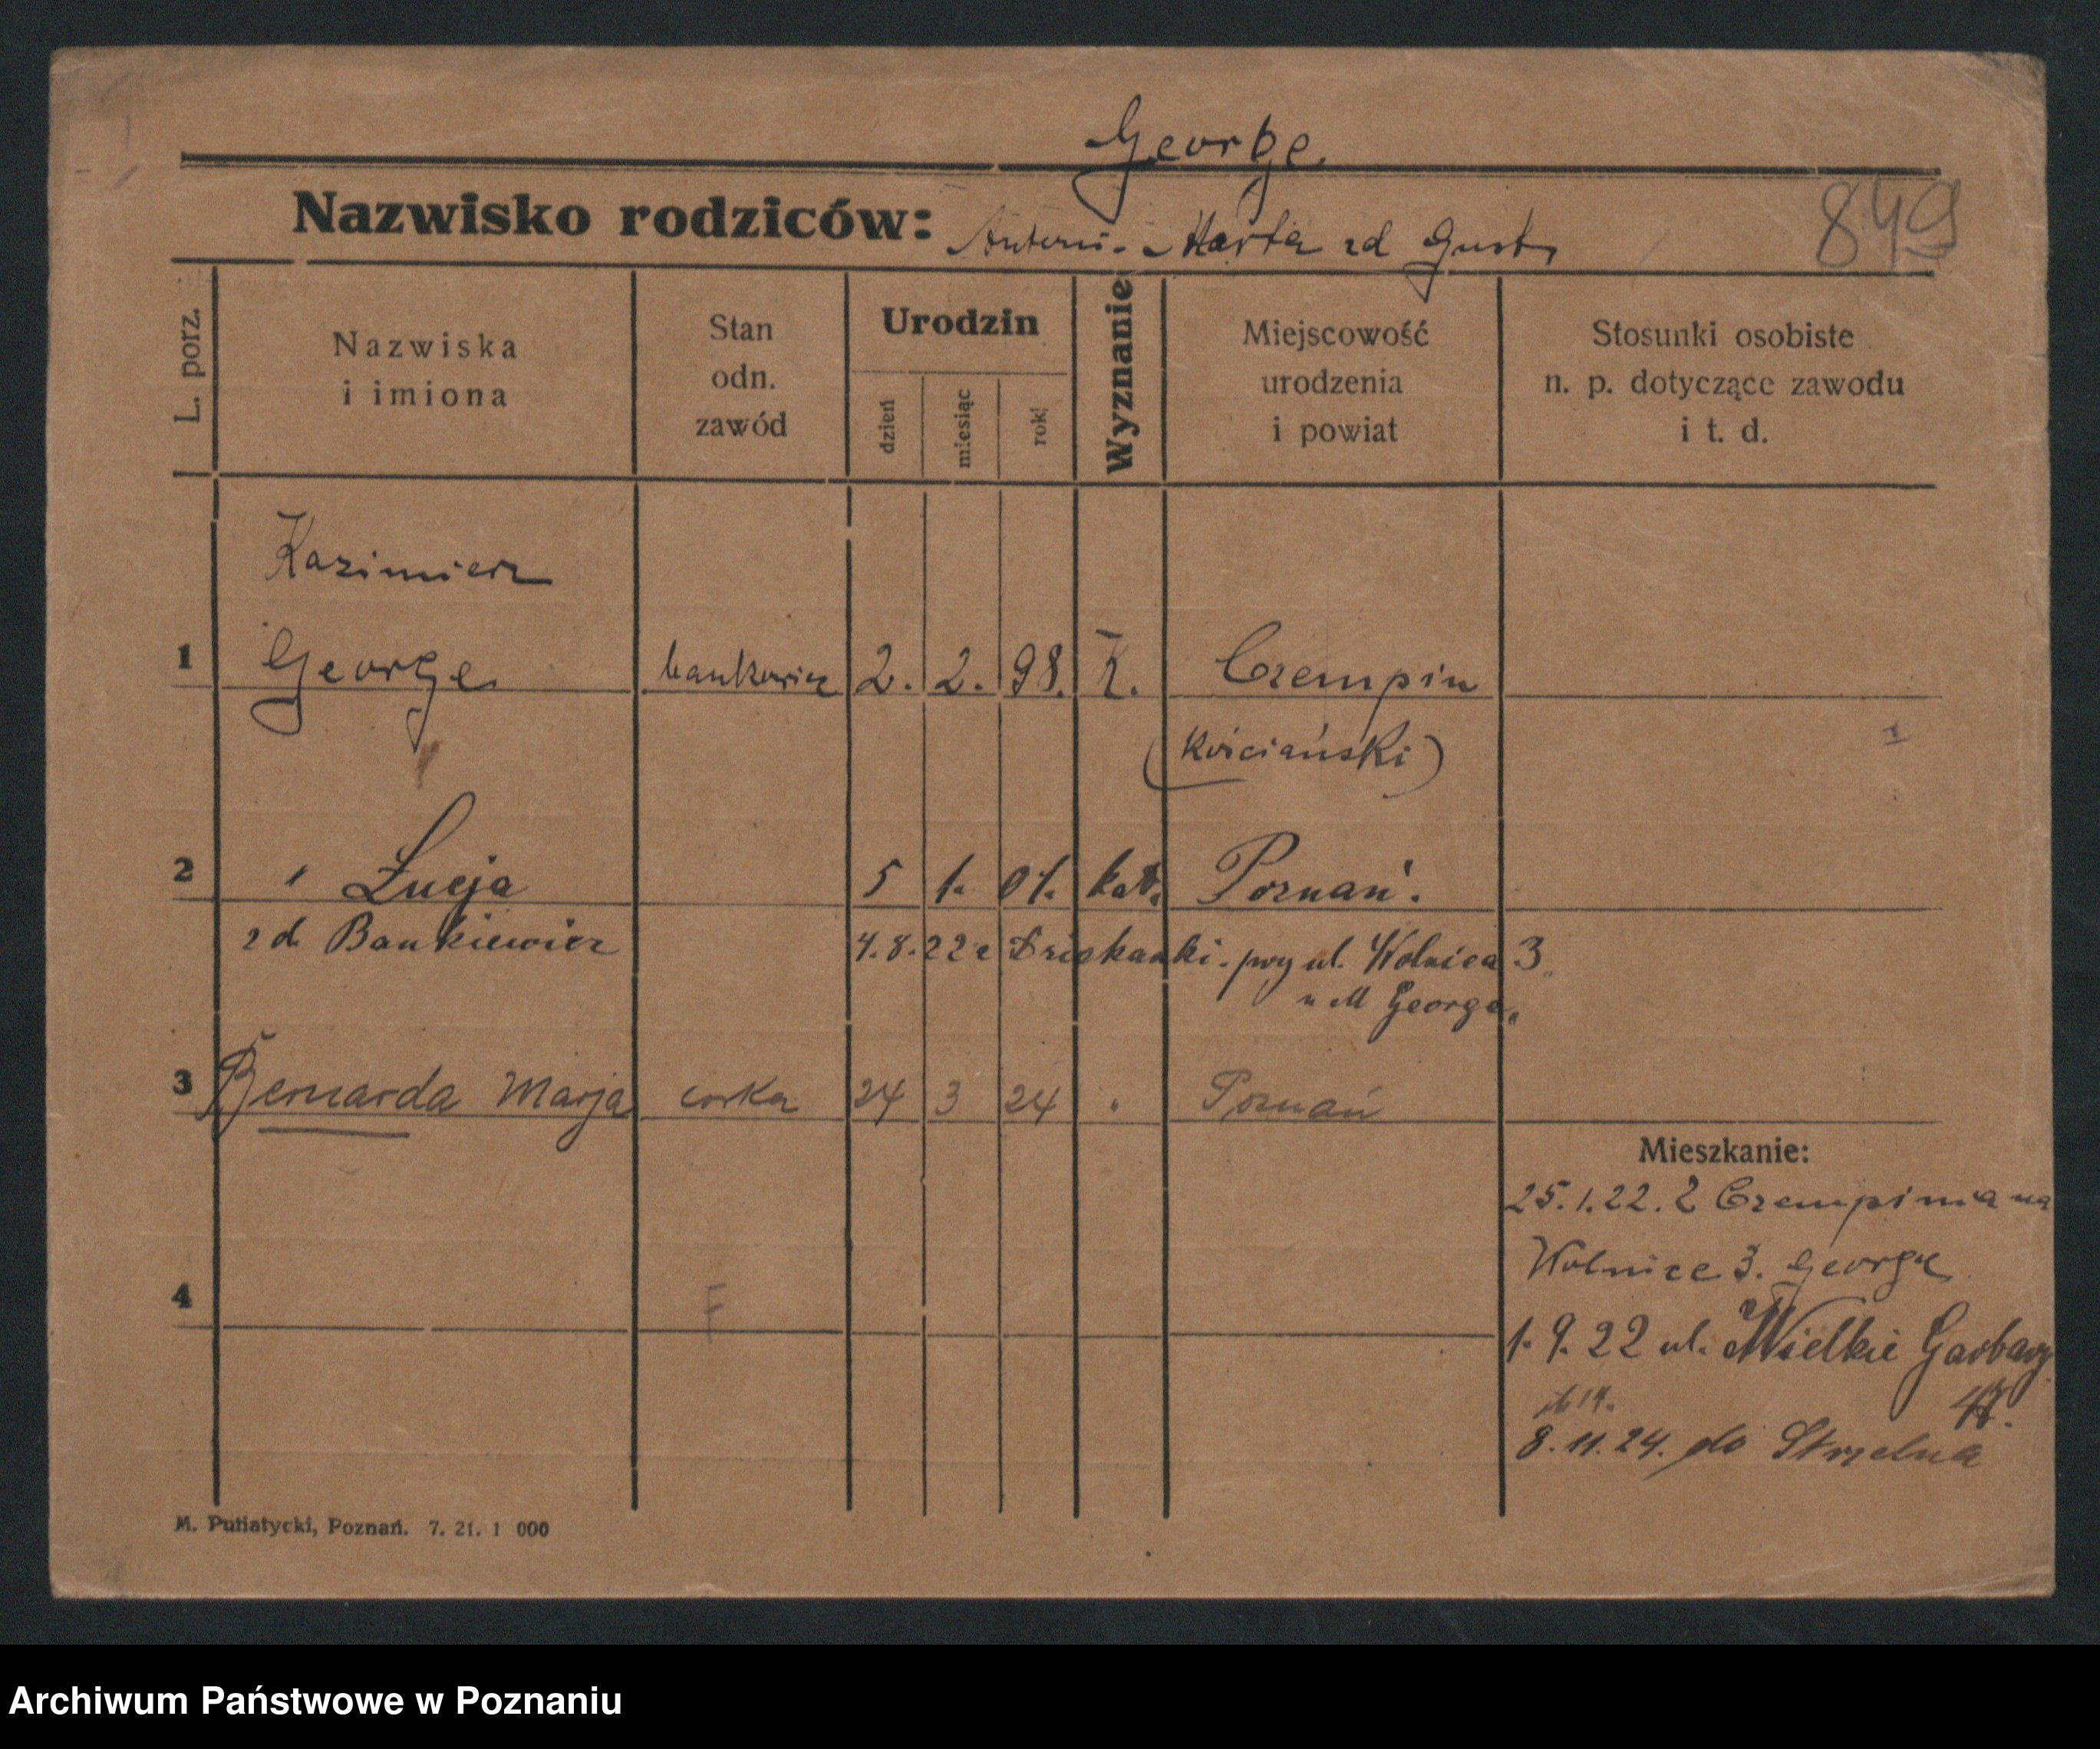 George
Nazwisko rodziców: Antoni - Marta zd Gust
849
L. porz.
Nazwiska
i imiona
Stan
odn.
zawód
Urodzin
dzień
miesiąc
rok
Wyznanie
Miejscowość
urodzenia
i powiat
Stosunki osobiste
n. p. dotyczące zawodu
i t. d.
Kazimierz
1 George bankowiec 2. 2. 98. k. Czempin
(Kościański)
2 " Łucja 5 1. 01. kat. Poznań.
zd Bankiewicz 4.8.22 z przy ul. Wolnica 3
u M George
3 Bernarda Marja corka 24 3 24 " Poznań
Mieszkanie:
25.1.22. Z Czempinia na
Wolnice 3. George
4 F
1. 9. 22 ul. Wielkie Garbary
47.
14.
8. 11. 24. do Strzelna
M. Putiatycki, Poznań. 7. 21. 1 000
Archiwum Państwowe w Poznaniu